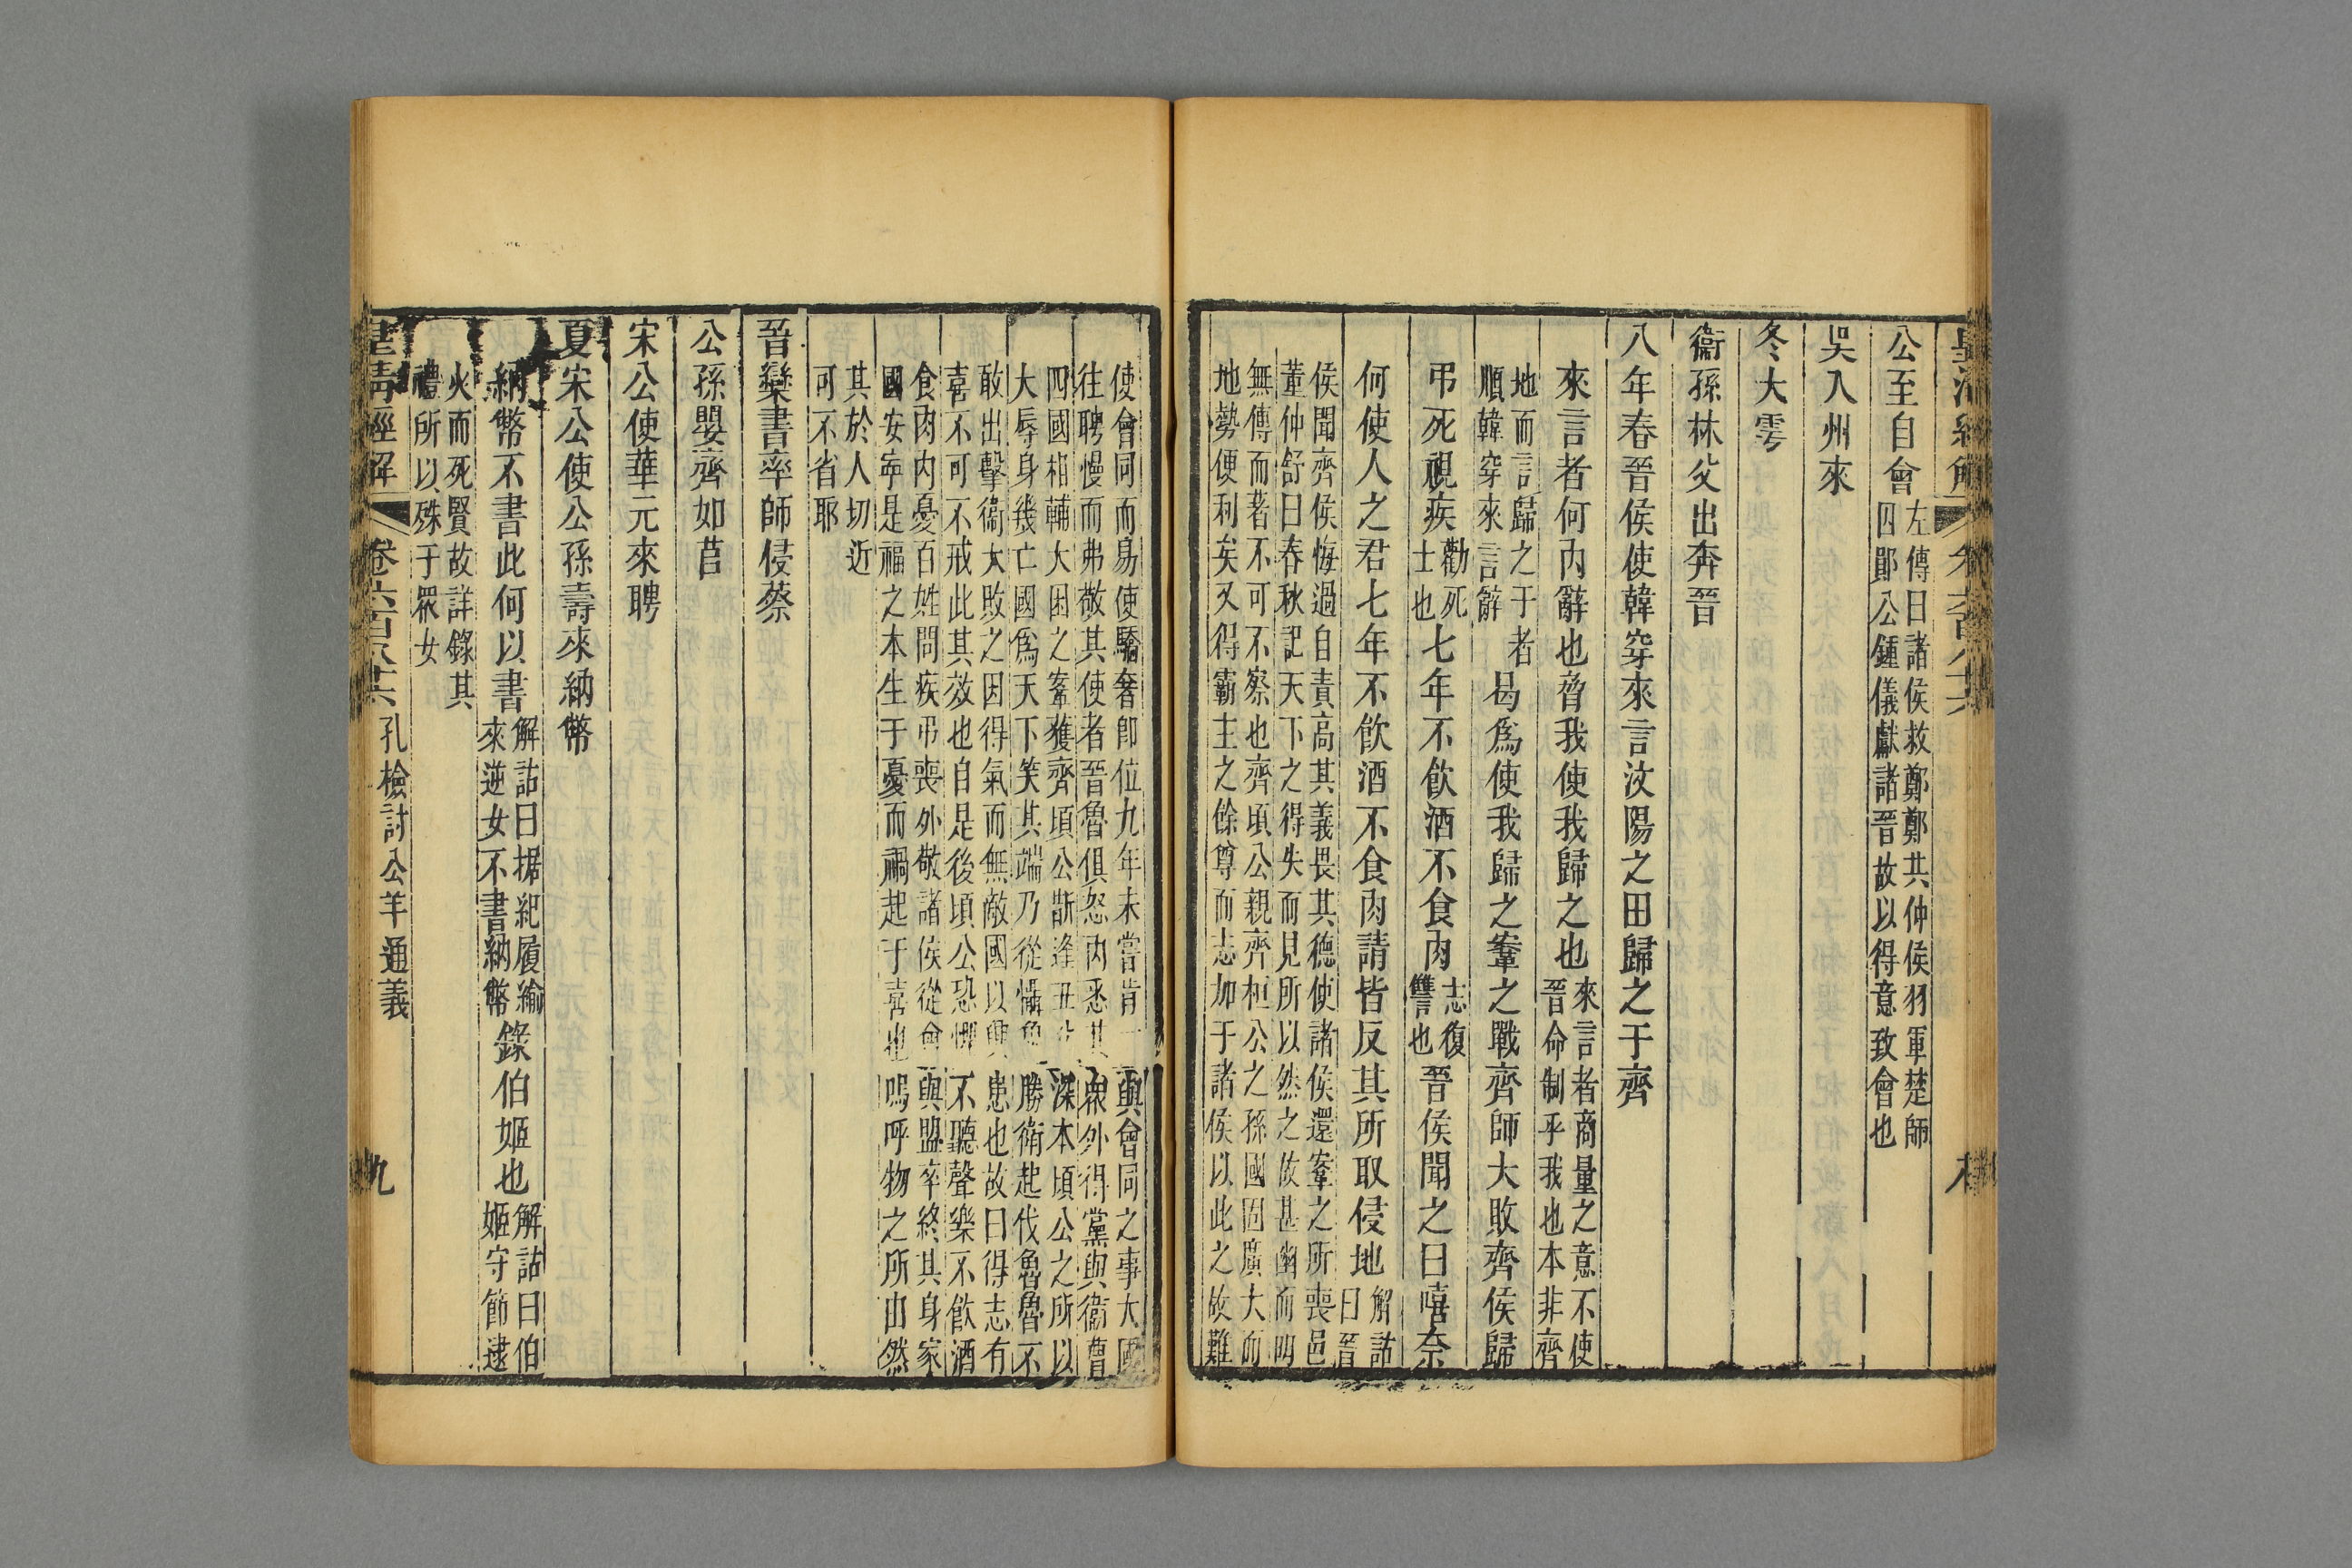 公至自會左傳曰諸侯救鄭鄭共仲侯羽軍楚師
囚鄖公鍾儀獻諸晉故以得意致會也
吳入州來
冬大雩
衞孫林父出奔晉
八年春晉侯使韓穿來言汶陽之田歸之于齊
來言者何內辭也脅我使我歸之也來言者商量之意不使
晉命制乎我也本非齊
地而言歸之于者
順韓穿來言辭曷爲使我歸之鞌之戰齊師大敗齊侯歸
弔死視疾勸死士也七年不飲酒不食肉志復讐也晉侯聞之曰嘻奈
何使人之君七年不飲酒不食肉請皆反其所取侵地解詁曰晉
侯聞齊侯悔過自責高其義畏其德使諸侯還鞌之所喪邑
董仲舒曰春秋記天下之得失而見所以然之故甚幽而明
無傳而著不可不察也齊頃公親齊桓公之孫國固廣大而
地勢便利矣又得霸主之餘尊而志加于諸侯以此之故難
使會同而易使驕奢卽位九年未嘗肯一與會同之事大國
往聘慢而弗敬其使者晉魯俱怒內悉其眾外得黨與衞曹
四國相輔大困之鞌獲齊頃公斮逢丑父深本頃公之所以
大辱身幾亡國爲天下笑其端乃從懾魯勝衞起伐魯魯不
敢出擊衞大敗之因得氣而無敵國以興患也故曰得志有
喜不可不戒此其效也自是後頃公恐懼不聽聲樂不飲酒
食肉內憂百姓問疾弔喪外敬諸侯從會與盟卒終其身家
國安寧是福之本生于憂而禍起于喜也嗚呼物之所由然
其於人切近
可不省耶
晉欒書率師侵蔡
公孫嬰齊如莒
宋公使華元來聘
夏宋公使公孫壽來納幣
納幣不書此何以書解詁曰据紀履緰
來逆女不書納幣錄伯姬也解詁曰伯
姬守節逮
火而死賢故詳錄其
禮所以殊于眾女
皇清經解 卷六百八十六 孔檢討公羊通義 九